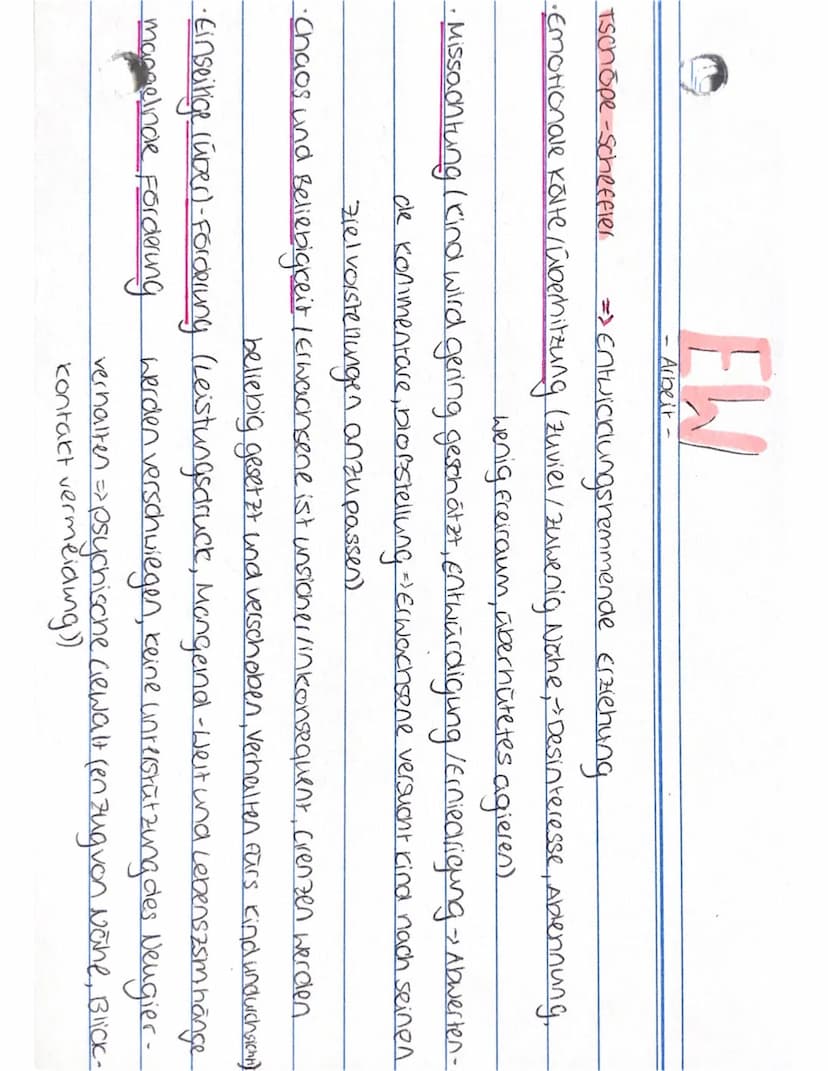 EW
- Arbeit -
Tschöpe-Scheffler => Entwicklungshemmende Erziehung
· Emotionale Kälte/Überhitzung (zuviel/zuwenig Nähe, -> Desinteresse, Ablehnung,
wenig Freiraum, überhütetes agieren)
· Missachtung (Kind wird gering geschätzt, Entwürdigung/Erniedrigung -> Abwerten-
de Kommentare, bloßstellung => Erwachsene versucht Kind nach seinen
Zielvorstellungen anzupassen)
· Chaos und Beliebigkeit (Erwachsene ist unsicher/inkonsequent, Grenzen werden
beliebig gesetzt und verschoben, verhalten fürs Kind undurchsicht)
· Einseitige (Über)-Förderung (Leistungsdruck, Mangend-Welt und Lebenszsmhänge
mangelnde Förderung werden verschwiegen, keine unterstützung des Neugier-
verhalten => psychische Gewalt (enzug von Nähe, Blick-
kontakt vermeidung))